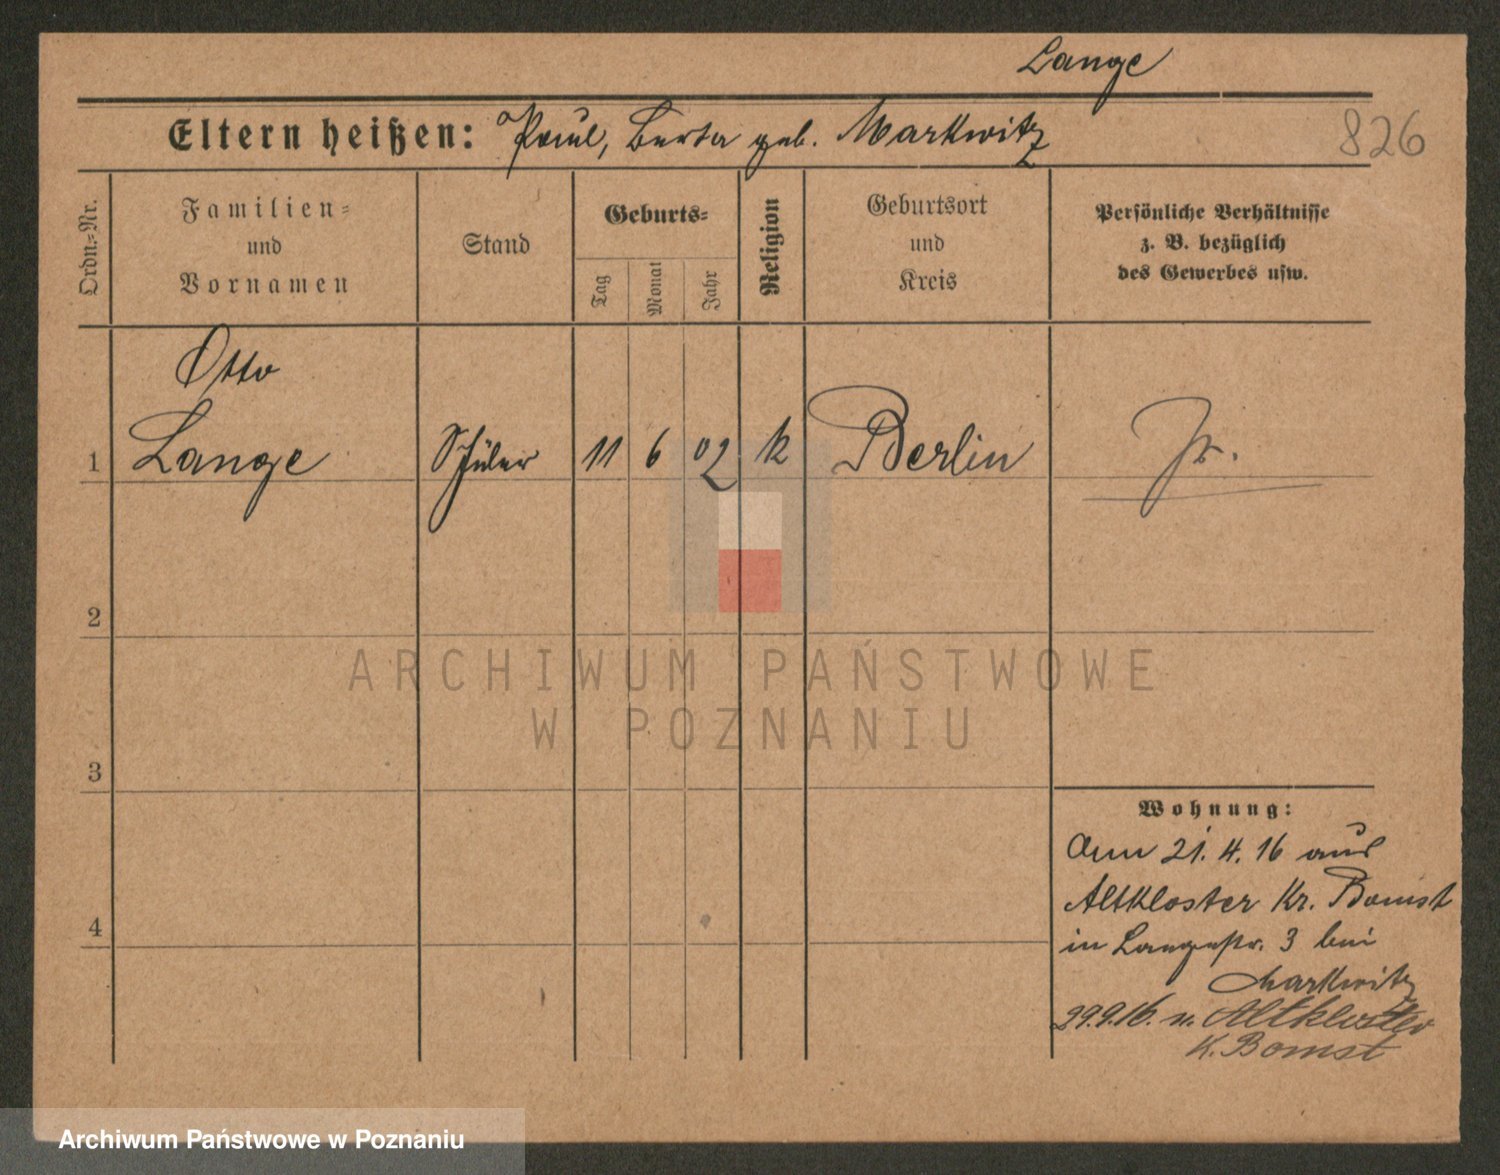 Lange
Eltern heißen: Paul, Berta geb. Markwitz
826
Ordn.-Nr.
Familien-
und
Vornamen
Stand
Geburts-
Tag
Monat
Jahr
Religion
Geburtsort
und
Kreis
Persönliche Verhältnisse
z. B. bezüglich
des Gewerbes usw.
Otto
1 Lange Schüler 11 6 02 k Berlin Pr.
2
3
4
Wohnung:
Am 21.4.16 aus
Altkloster Kr. Bomst
in Langestr. 3 bei
Markwitz
29.9.16. n. Altkloster
K. Bomst
ARCHIWUM PAŃSTWOWE
W POZNANIU
Archiwum Państwowe w Poznaniu